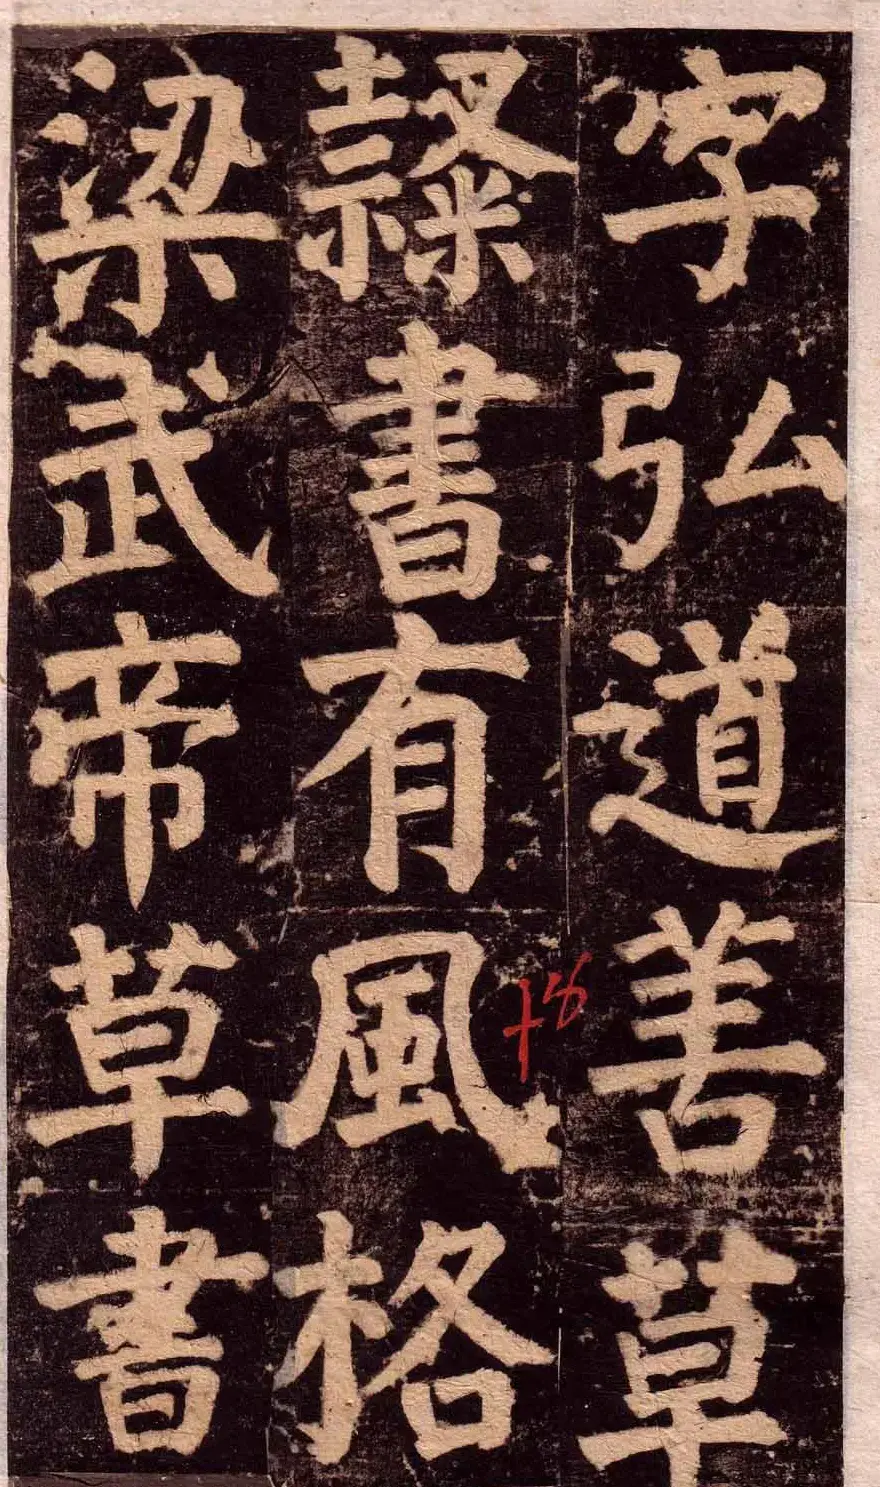 字弘道善草
隸書有風格
梁武帝草書